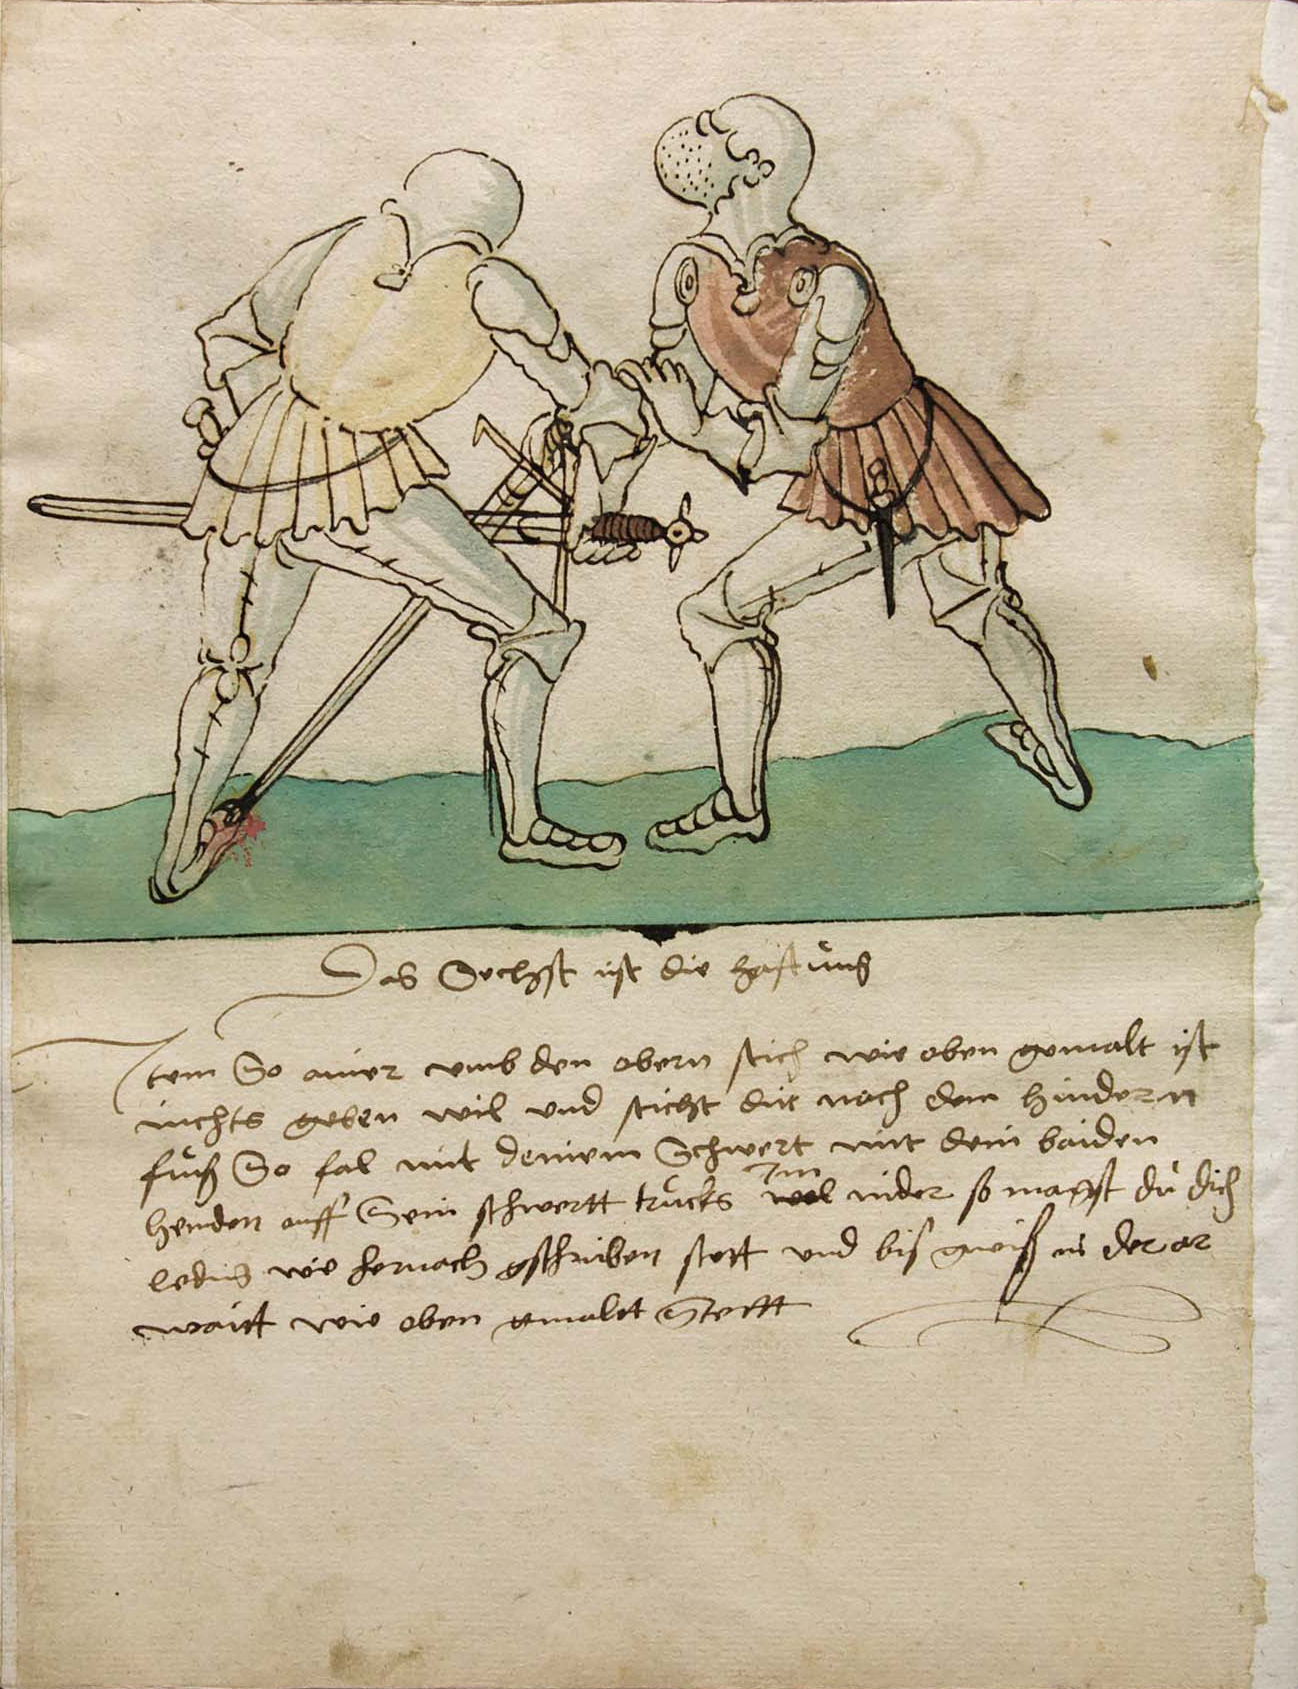 Das Sechst ist die hafftung
Item So ainer vmb den obern stich wie oben gemalt ist
nichts geben wil und sticht dir nach dem hindern
fuͦß So fal mit deinem Schwert mit dein baiden
henden auff Sein schwertt truͦcks Im wol nider so magst duͦ dich
ledig wie hernach gschriben stett und bis gwiß in der ar
waitt wie oben gmaltt Stettt